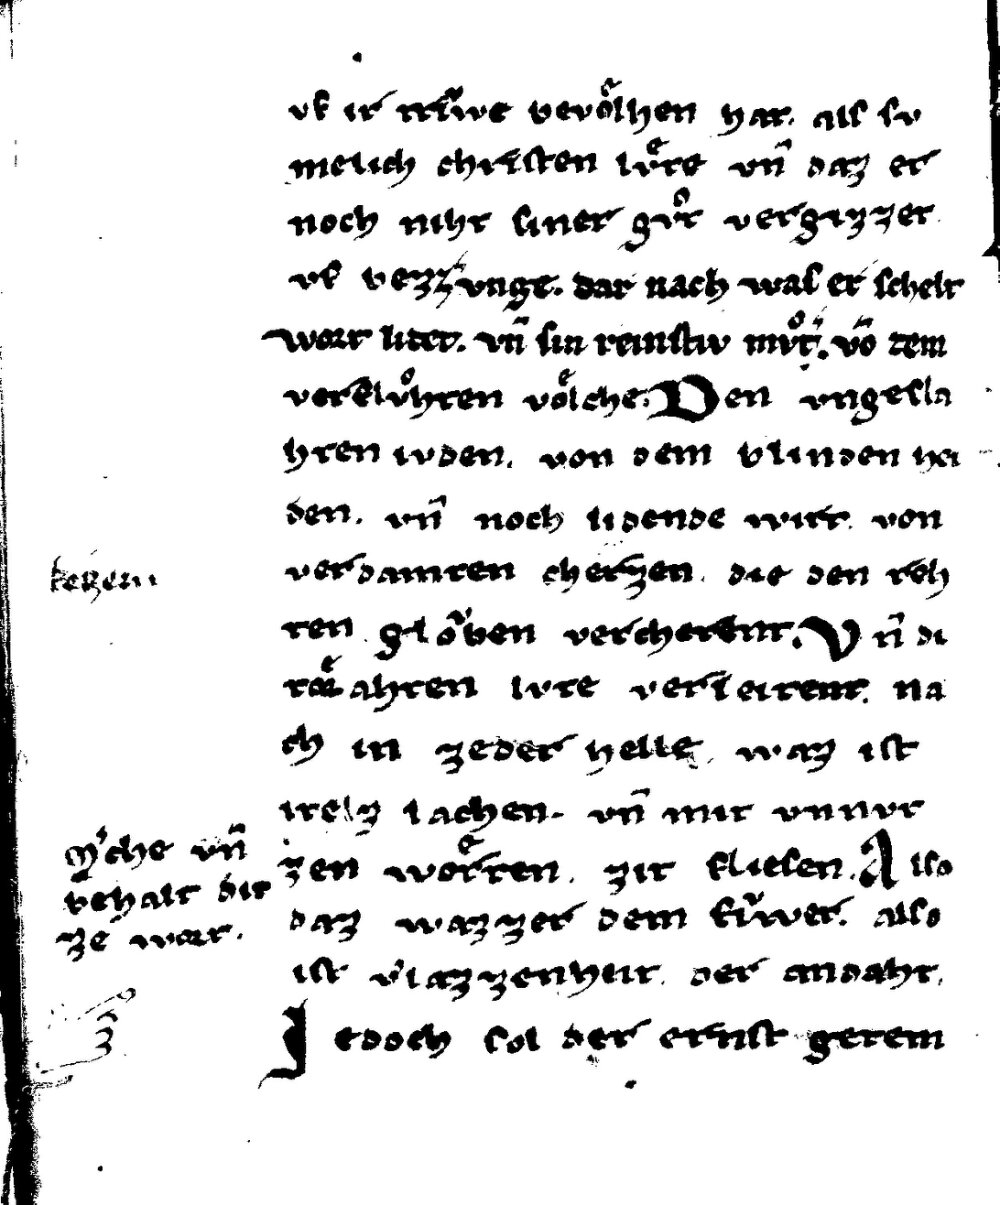 uf ir triwe bevolhen hat. als su
melich christen lůte vñ daz er
noch niht siner gůt vergizzet
uf bezzrunge. dar nach waſ er schelt
wort lidet. vñ ſin reinſtiv mv̊t. võ dem
verflůhten volche. Den ungeſla
hten ivden. von dem blinden hei
den. vñ noch lidende wirt. von
verdamten cherzen. die den reh
ten glŏben vercherent. Vñ di
ahten lvte verleitent. na
ch in zeder helle. waz iſt
itelz lachen. vñ mit unnvt
zen worten. zit fliesen. Also
daz wazzer dem fiwer. also
iſt vrazzenheit. der andaht.
Jedoch sol der ernſt gerem
ketzern
M'che vñ
behalt die
ze wort.